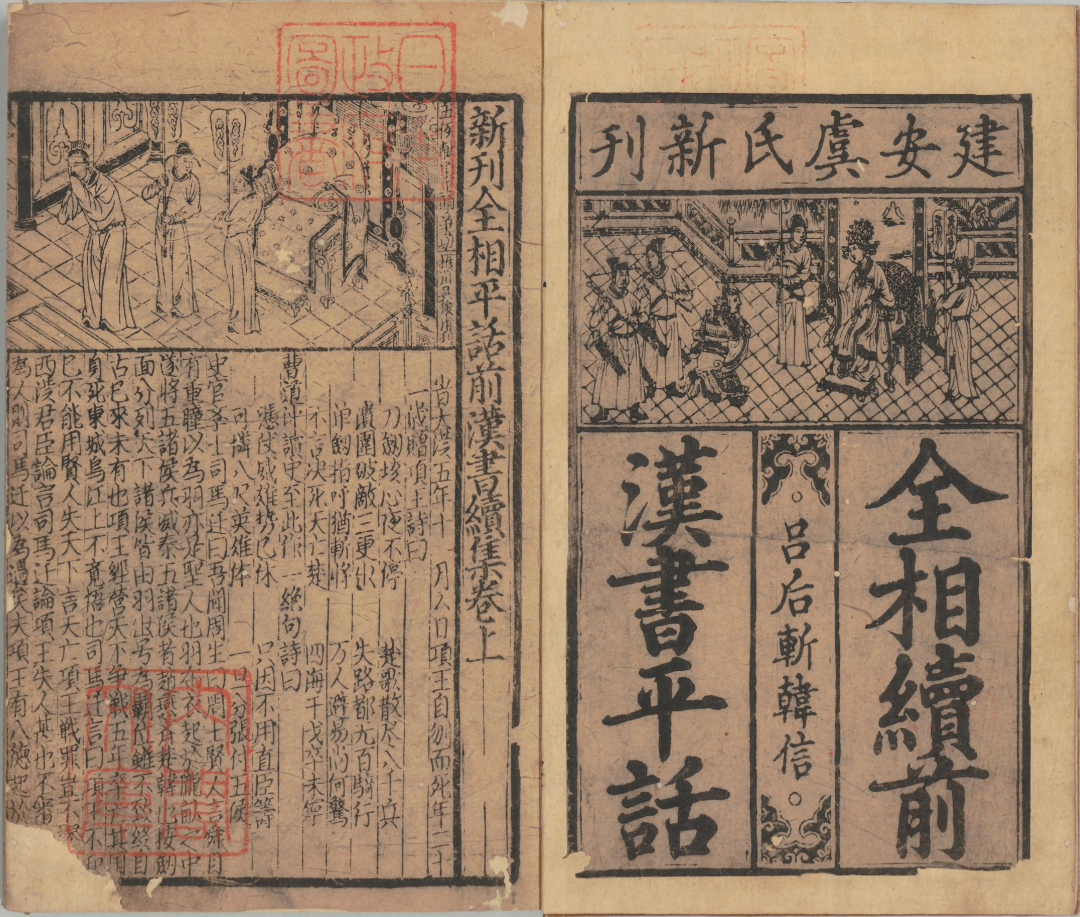 建安虞氏新刊
全相續前
呂后斬韓信
漢書平話
日本政府圖書
新刊全相平話前漢書續集卷上
旹大漢五年十月八日項王自刎而死年三十
一歲贈項王詩曰
刀劒垓心便不停 楚歌散尽八千兵
潰圍破敵三更出 失路都无百騎行
單劒指呼猶斬將 万人辟易尚何驚
不言決死夫亡楚 四海干戈卒未寧
曹道冲讀史至此作一絶句詩曰
憑仗威雄勢已休 只因不用直臣籌
可憐八尺英雄体 一旦分張付五侯
史官 司馬迁曰吾聞周生曰聞之賢人言舜目
有重瞳以為羽亦是聖人也羽不 起於隴畝之中
遂將五諸侯兵滅秦五諸侯者趙燕齊魏韓也按劒
面分列天下諸侯皆由羽出号為霸位雖不致終自
古已來未有也項王經營天下爭戰五年卒亡其國
身死東城烏江上不竟悟也司馬迁言曰項王不知
已不能用賢人失天下言天亡項王戰罪豈不謬
西漢君臣論言司馬迁論項王失人甚也不審
為人則司馬迁以為謬矣夫項王有八德
内閣文庫